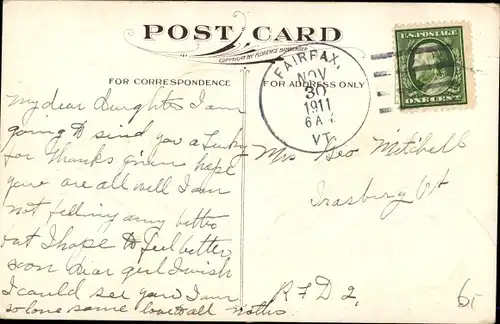 POST CARD
COPYRIGHT BY FLORENCE BAMBERGER
FOR CORRESPONDENCE
FOR ADDRESS ONLY
FAIRFAX,
NOV
30
1911
6 A
VT.
U.S. POSTAGE
ONE CENT
My dear daughter I am
going to send you a Turky
for Thanks given hope
you are all well I am
not felling any better
but I hope to feel better
soon dear girl I wish
I could see you I am
so lone some love to all mother
Mrs Geo Mitchell
Irasburg Vt
RFD 2,